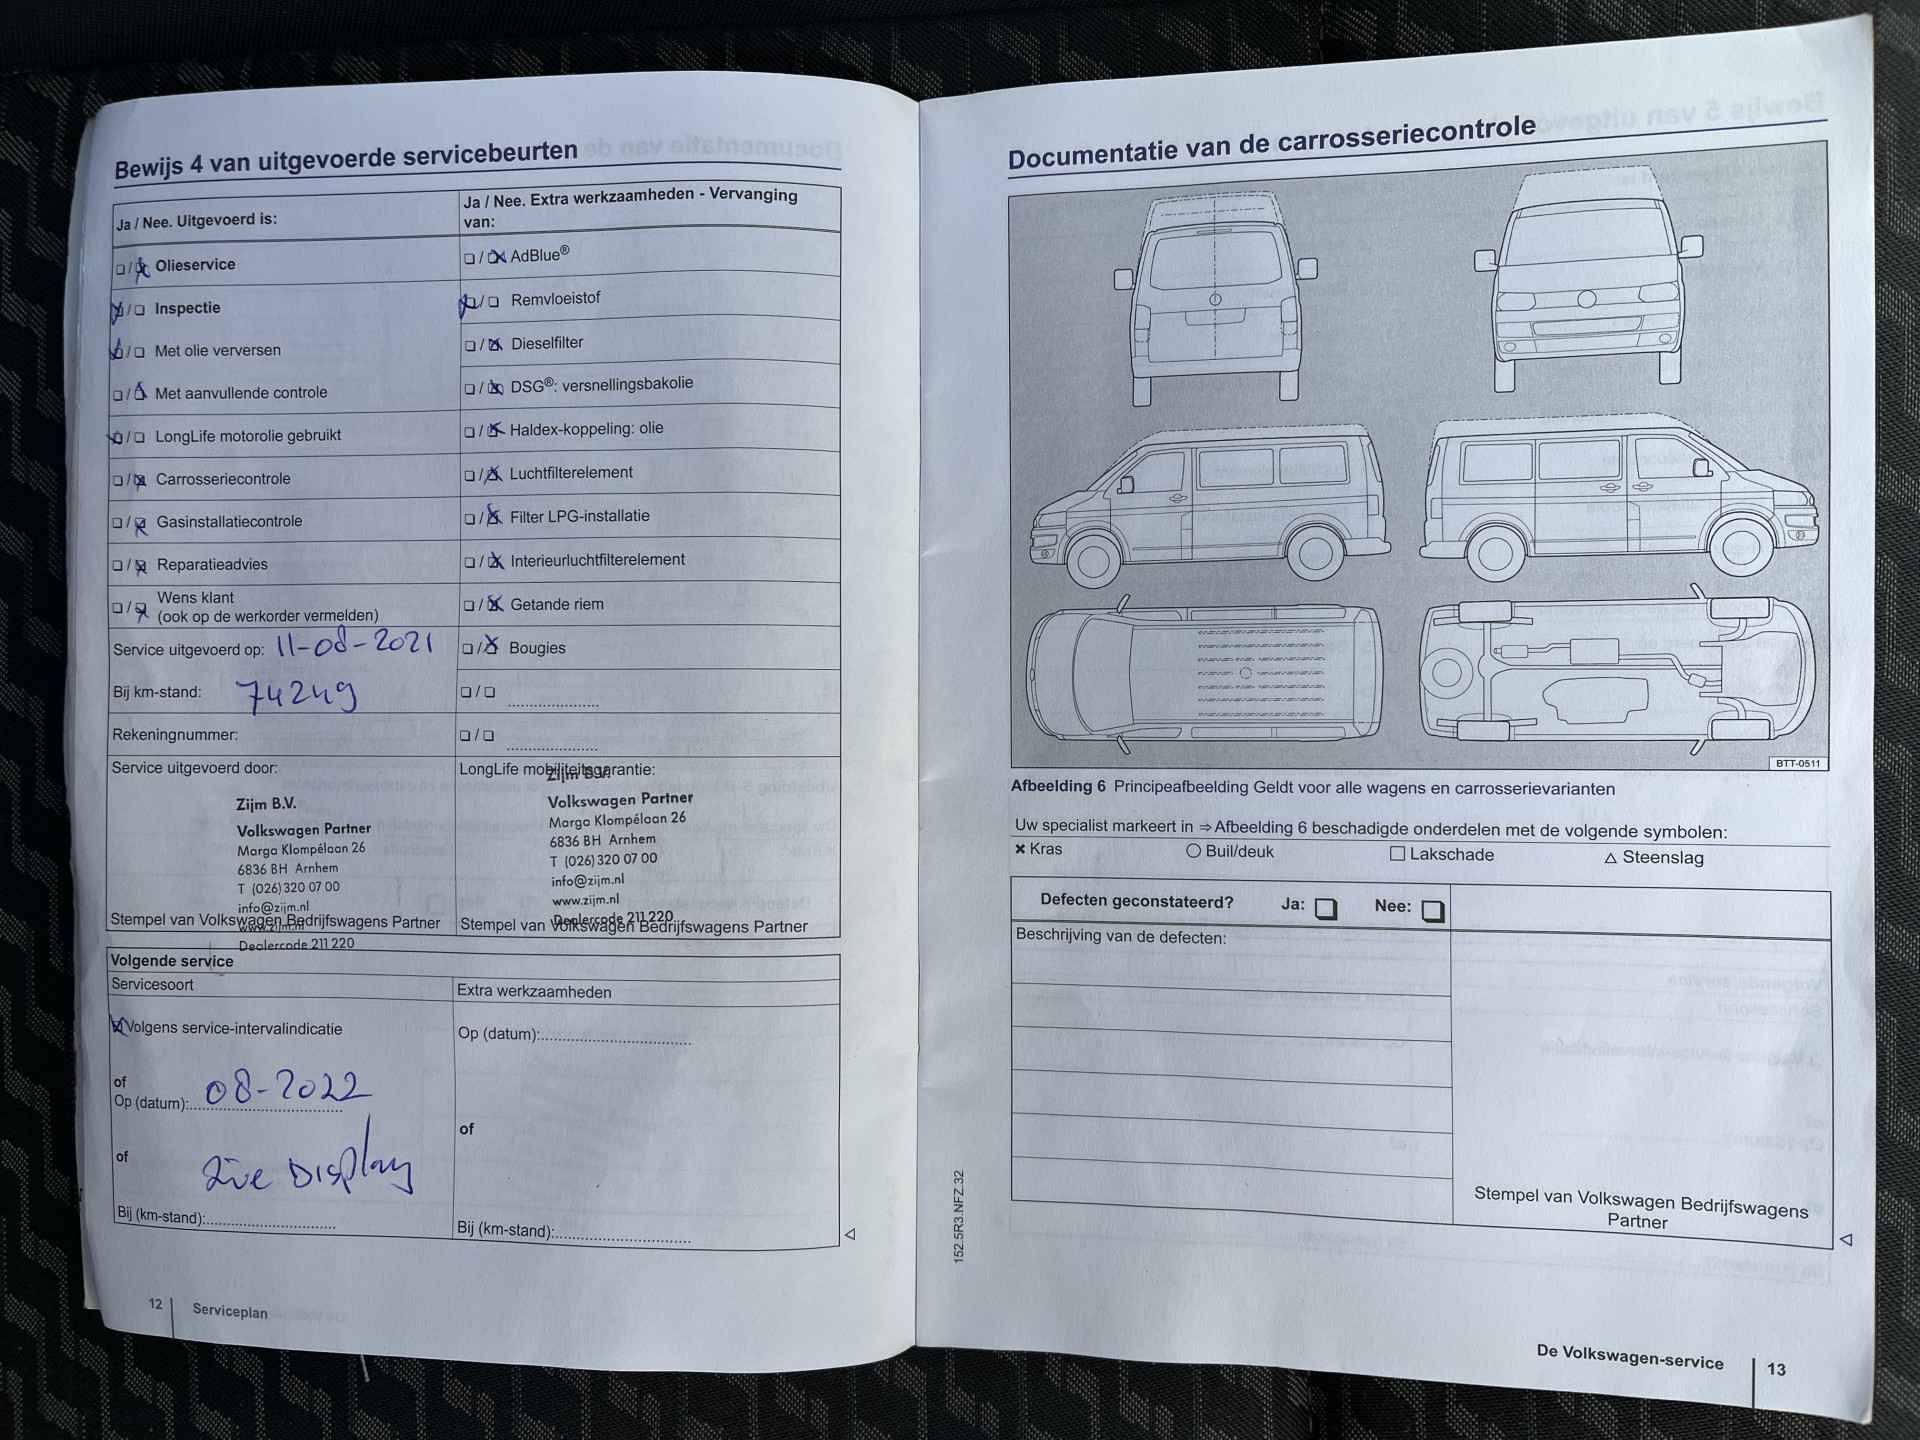 Bewijs 4 van uitgevoerde servicebeurten
Ja / Nee. Uitgevoerd is:
Ja / Nee. Extra werkzaamheden - Vervanging
van:
Olieservice
Inspectie
Met olie verversen
Met aanvullende controle
LongLife motorolie gebruikt
Carrosseriecontrole
Gasinstallatiecontrole
Reparatieadvies
Wens klant
(ook op de werkorder vermelden)
Service uitgevoerd op: 11-08-2021
Bij km-stand: 74249
Rekeningnummer:
AdBlue®
Remvloeistof
Dieselfilter
DSG®: versnellingsbakolie
Haldex-koppeling: olie
Luchtfilterelement
Filter LPG-installatie
Interieurluchtfilterelement
Getande riem
Bougies
Service uitgevoerd door:
Zijm B.V.
Volkswagen Partner
Marga Klompélaan 26
6836 BH Arnhem
T (026) 320 07 00
info@zijm.nl
www.zijm.nl
Dealercode 211 220
Stempel van Volkswagen Bedrijfswagens Partner
LongLife mobiliteitsgarantie:
Zijm B.V.
Volkswagen Partner
Marga Klompélaan 26
6836 BH Arnhem
T (026) 320 07 00
info@zijm.nl
www.zijm.nl
Dealercode 211 220
Stempel van Volkswagen Bedrijfswagens Partner
Volgende service
Servicesoort
Volgens service-intervalindicatie
of
Op (datum): 08-2022
of
Zie Display
Bij (km-stand):
Extra werkzaamheden
Op (datum):
of
Bij (km-stand):
12 Serviceplan
Documentatie van de carrosseriecontrole
BTT-0511
Afbeelding 6 Principeafbeelding Geldt voor alle wagens en carrosserievarianten
Uw specialist markeert in ⇒ Afbeelding 6 beschadigde onderdelen met de volgende symbolen:
× Kras ○ Buil/deuk □ Lakschade △ Steenslag
Defecten geconstateerd? Ja: Nee:
Beschrijving van de defecten:
Stempel van Volkswagen Bedrijfswagens
Partner
152.5R3.NFZ.32
De Volkswagen-service 13